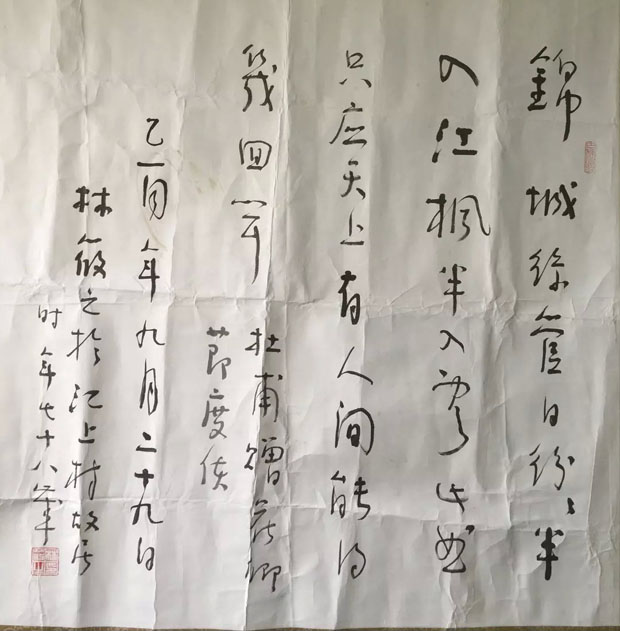 錦城絲管日紛〻半
入江楓半入雲此曲
只应天上有人间能得
幾回闻
杜甫赠花卿
莭度使
乙酉年九月二十九日
林筱之於江上村故居
时年七十八